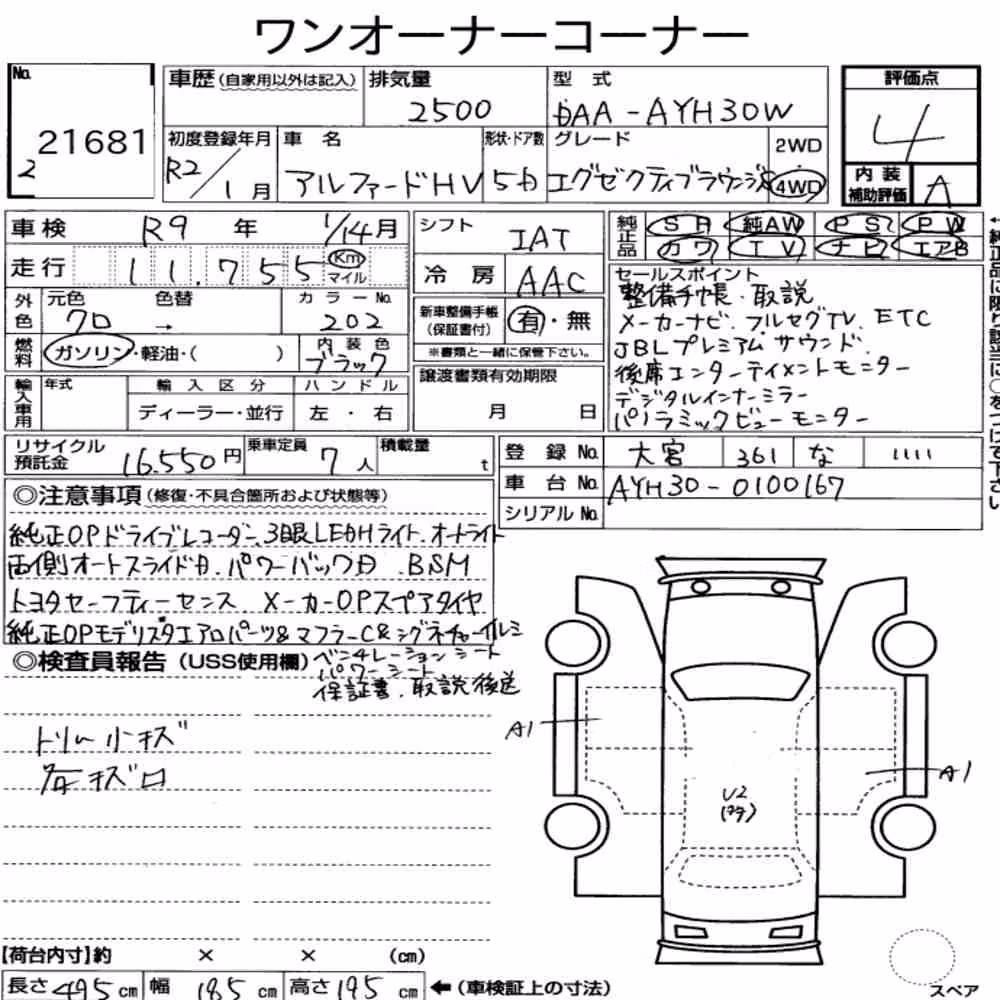 ワンオーナーコーナー
No. 21681
2
車歴(自家用以外は記入) 排気量 2500 型 式 DAA-AYH30W
評価点 4
初度登録年月 R2/1月 車 名 アルファードHV 形状・ドア数 5D グレード エグゼクティブラウンジS 2WD 4WD
内装補助評価 A
車検 R9 年 1/14月 シフト IAT
純正品 SR 純AW PS PW
カワ TV ナビ エアB
走行 11,755 Km マイル 冷房 AAC
セールスポイント
整備手帳・取説
メーカーナビ.フルセグTV.ETC
JBLプレミアムサウンド.
後席エンターテイメントモニター
デジタルインナーミラー
パノラミックビューモニター
外色 元色 クロ 色替 → カラーNo. 202
新車整備手帳(保証書付) 有・無
※書類と一緒に保管下さい。
燃料 ガソリン・軽油・( ) 内装色 ブラック
輸入車用 年式 輸入区分 ハンドル
ディーラー・並行 左・右
譲渡書類有効期限
月 日
リサイクル預託金 16.550円 乗車定員 7人 積載量 t
登録No. 大宮 361 な 1111
車台No. AYH30-0100167
シリアルNo.
◎注意事項(修復・不具合箇所および状態等)
純正OPドライブレコーダー.3眼LEDHライト.オートライト
両側オートスライドD.パワーバックD.BSM
トヨタセーフティーセンス.メーカーOPスペアタイヤ
純正OPモデリスタエアロパーツ&マフラーC&シグネチャーイルミ
◎検査員報告(USS使用欄) ベンチレーションシート
パワーシート
保証書.取説後送
トリム小キズ
キズ
A1
A1
U2
【荷台内寸】約 × × (cm)
長さ 495 cm 幅 185 cm 高さ 195 cm ←(車検証上の寸法)
スペア